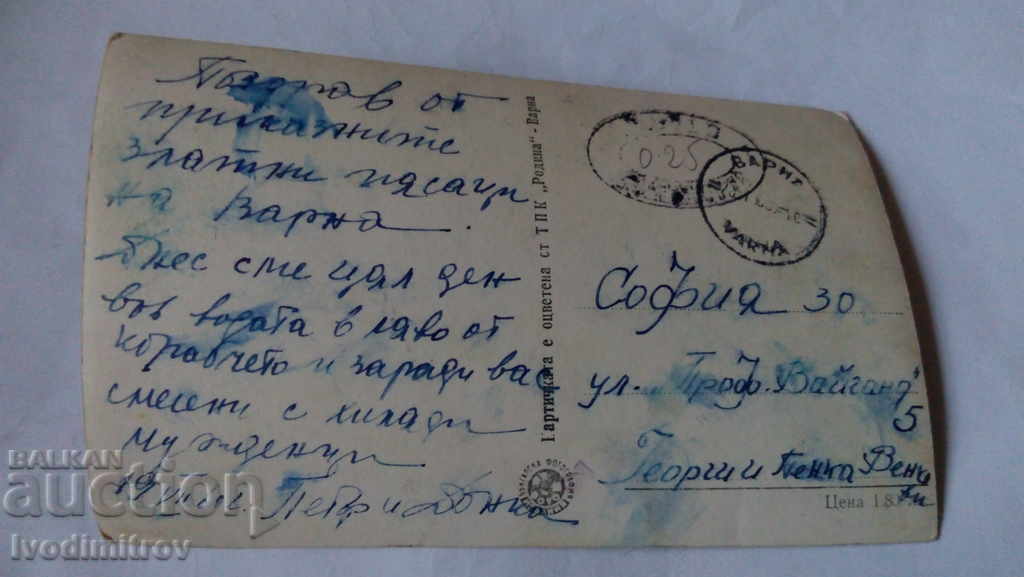 Поздрав от
приказните
златни пясъци
на Варна.
Днес сме цял ден
във водата в ляво от
корабчето и заради вас
смесени с хиляди
чужденци
Петър и Донка
Картичката е оцветена от ТПК „Родина" - Варна
0.25
ВАРНА
VARNA
София 30
ул. „Проф. Вайганд"
5
Георги и Пенка
Цена 1.8
BALKAN
auction
Ivodimitrov